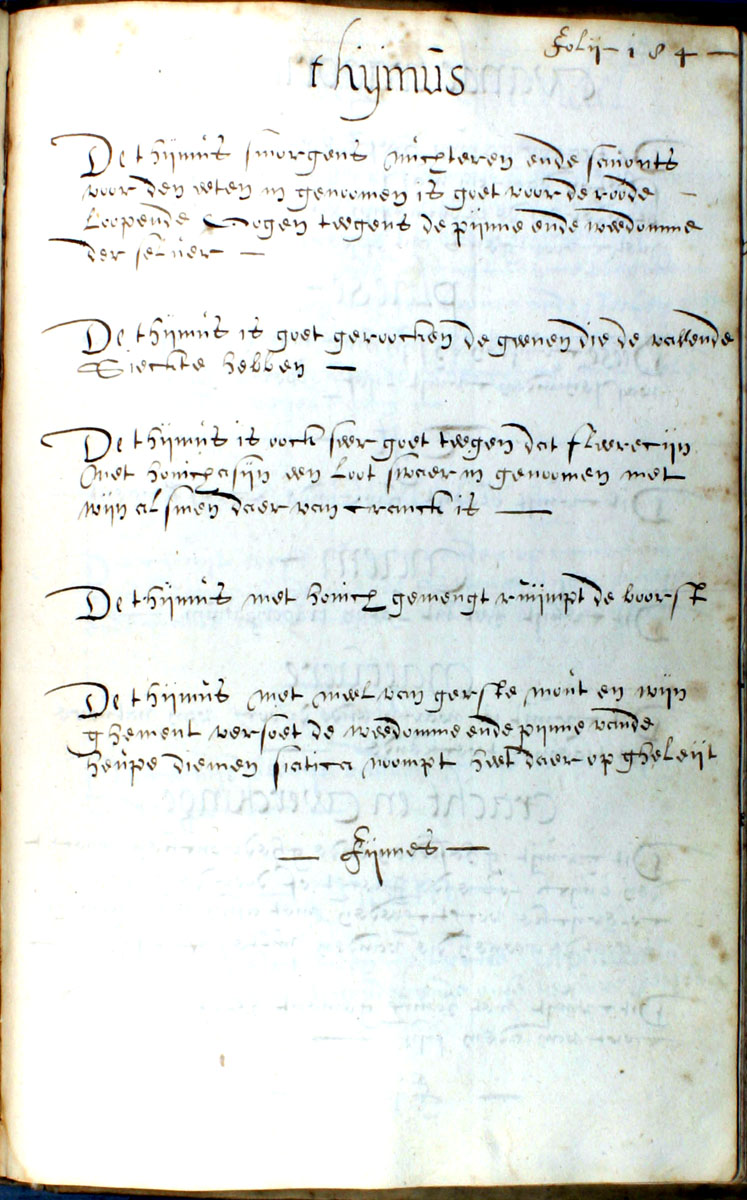 Folij 184
thijmus
De thijmus smorgens nuchteren ende savonts
voor den eeten in genoomen is goet voor de roode
loopende oogen teegens de pijnne ende weedomme
der selver
De thijmus is goet geroocken de geenen die de vallende
Sieckte hebben
De thijmus is oock seer goet teegen dat fleerecijn
Met honich asijn een loot swaer in genoomen met
wijn alsmen daer van cranck is
De thijmus met honich gemengt ruijmpt de boorst
De thijmus met meel van gerste mout en wijn
ghement versoet de weedomme ende pijnne vande
heupe diemen siatica noompt heet daer op gheleijt
Fijnnes